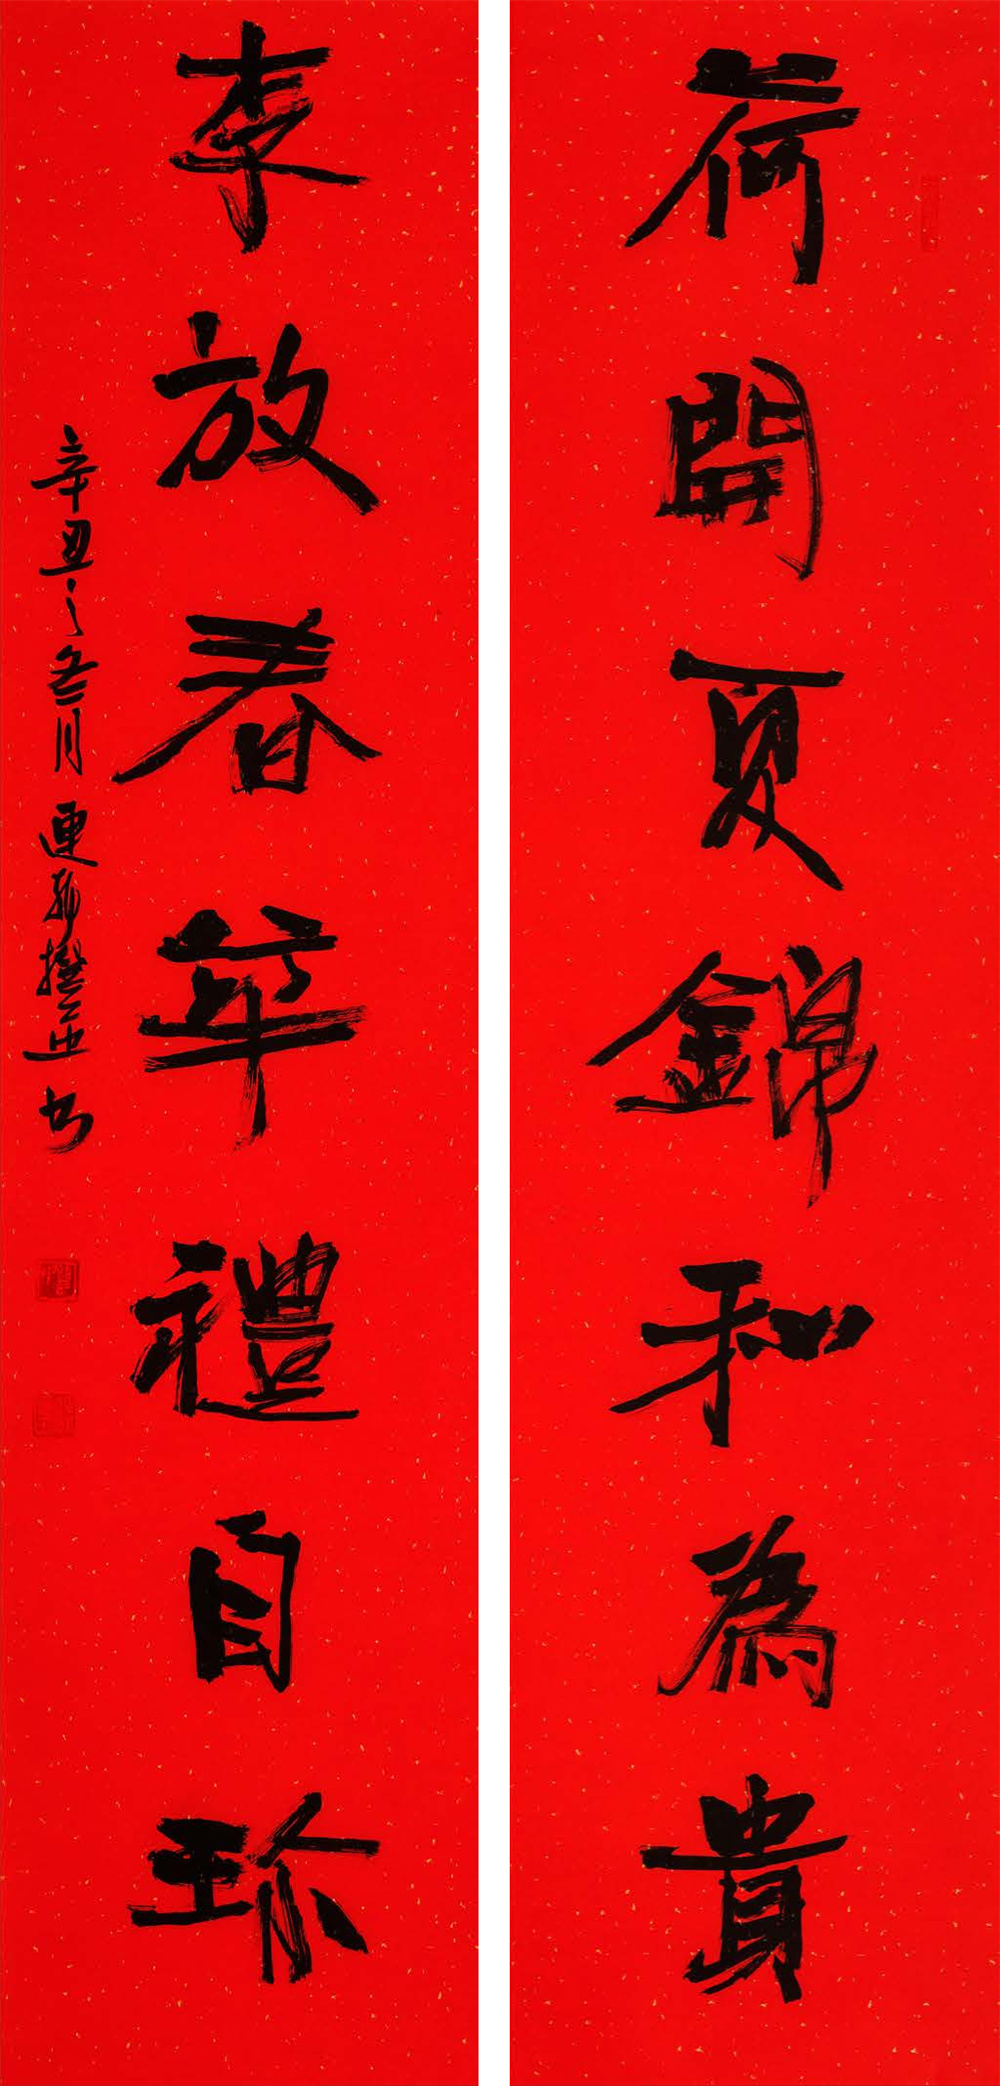 荷開夏錦和為貴
李放春華禮自珍
辛丑之冬月連
撰並書